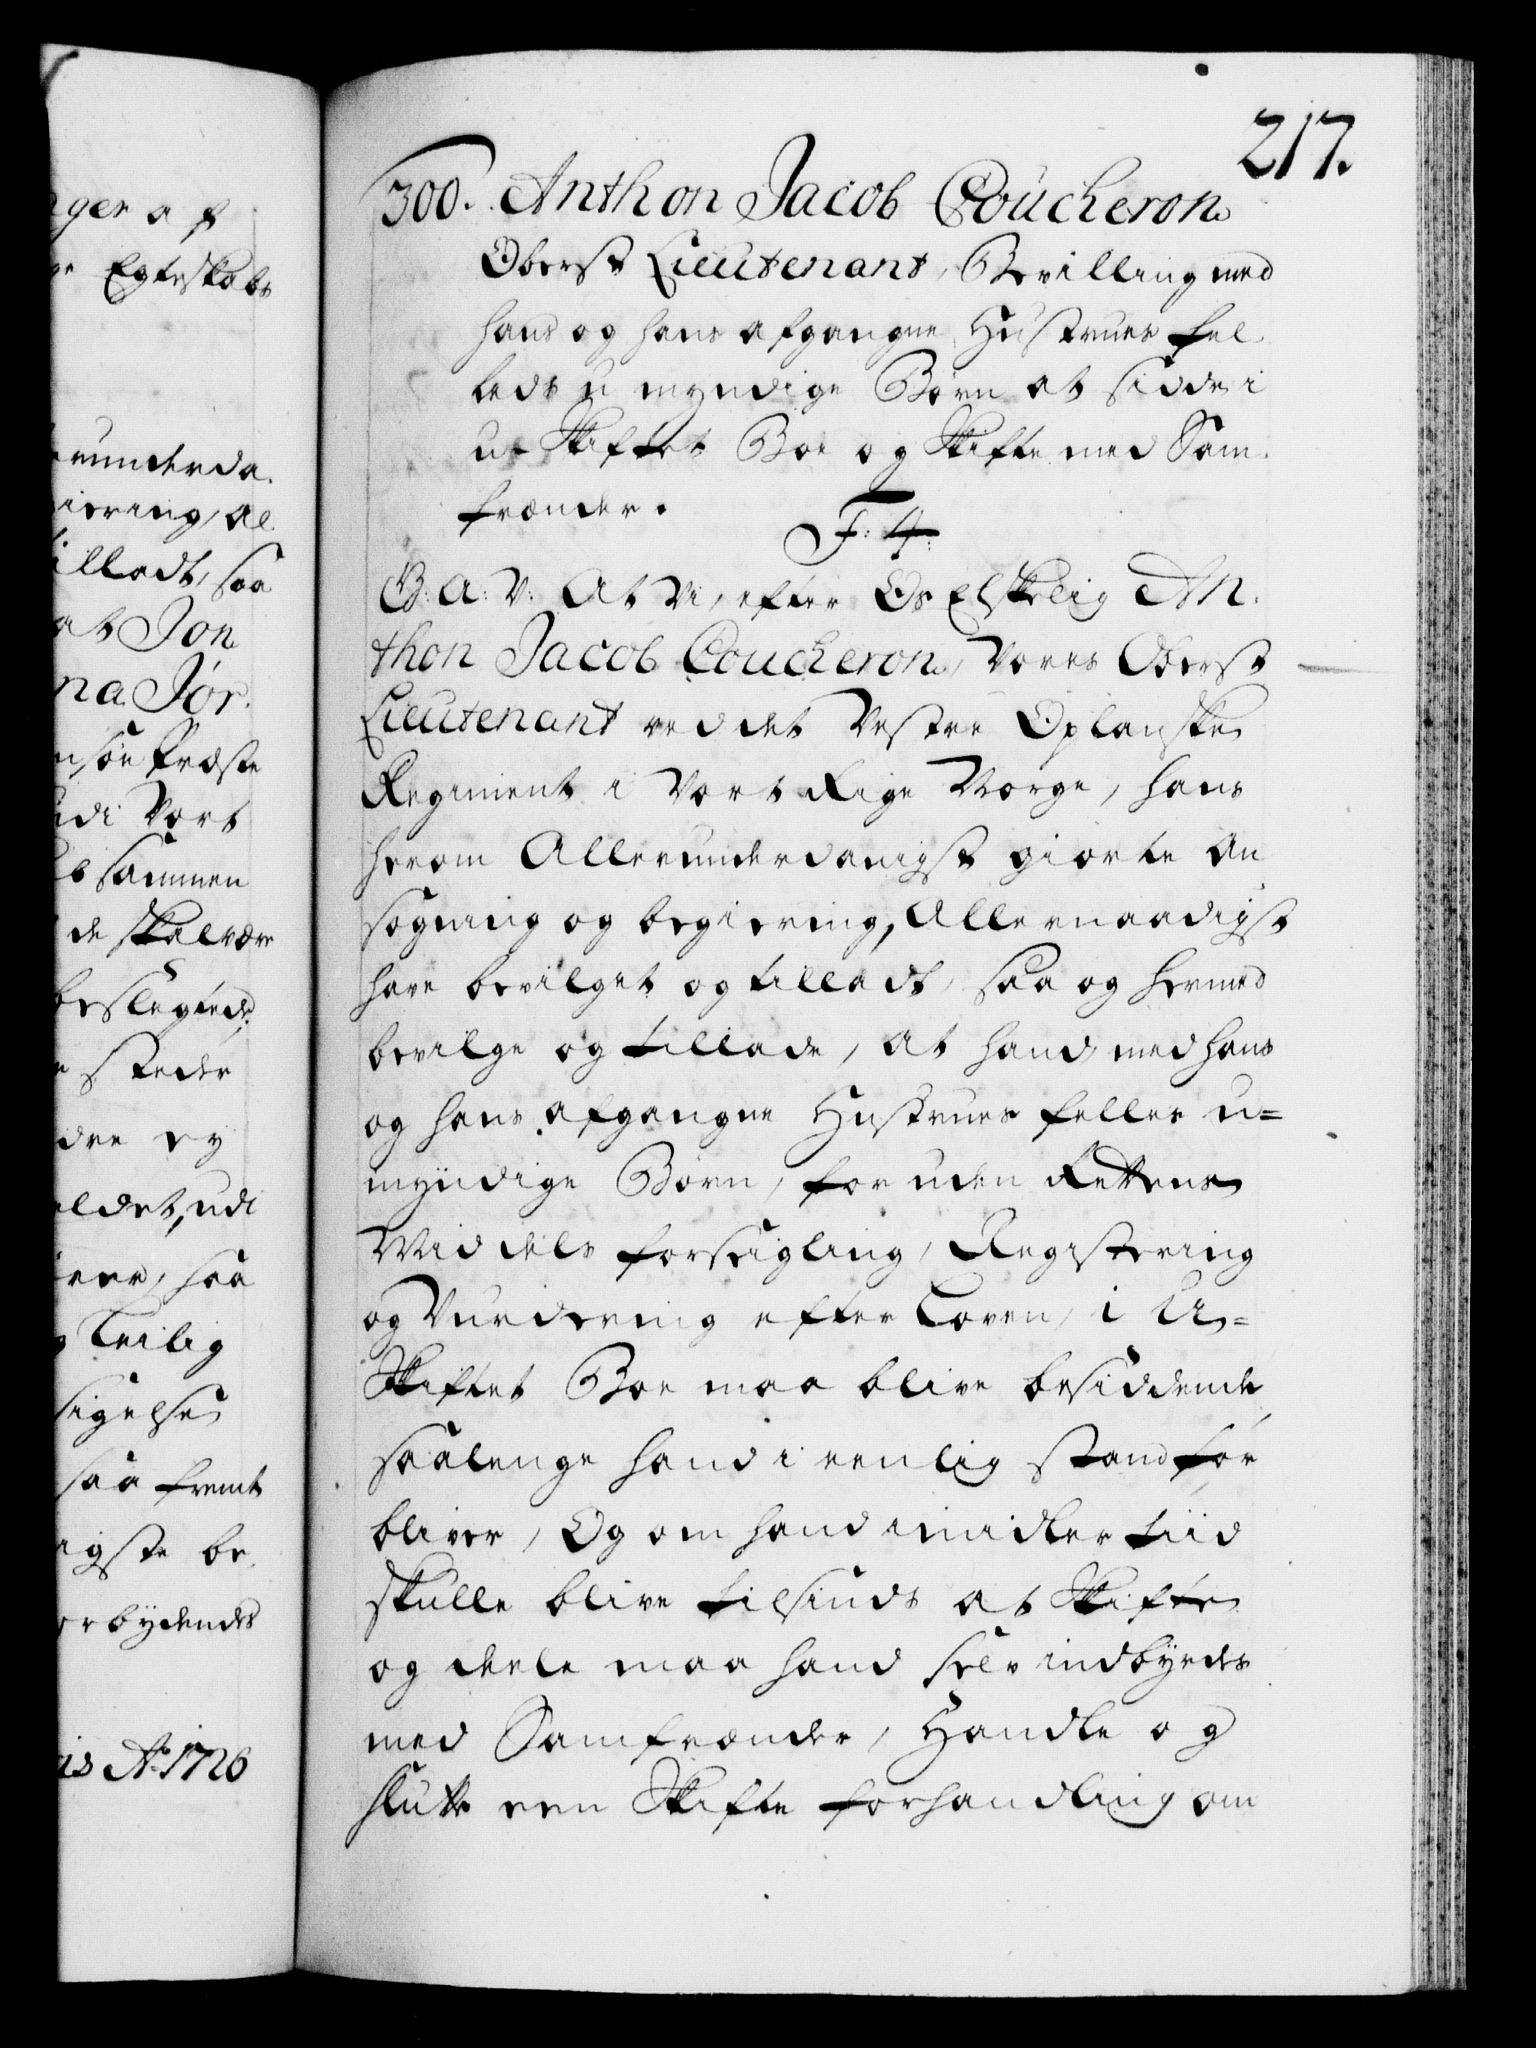 217.
300. Anthon Jacob Coucheron
Oberst Lieutenant, Bevilling med
hans og hans afgangne Hustrues fel-
leds u myndige Børn at sidde i
u-Skiftet Boe og Skifte med Sam-
frænder.
F: 4.
G: A: V: At Vi, efter Os Elskelig An-
thon Jacob Coucheron, Vores Oberst
Lieutenant ved det Vestre Oplanske
Regiment i Vort Rige Norge, hans
herom Allerunderdanigst giorte An
søgning og begiering, Allernaadigst
have bevilget og tilladt, saa og hermed
bevilge og tillade, at hand med hans
og hans afgangne Hustrues felles u-
myndige Børn, foruden Rettens
Middels forseigling, Registering
og Vurdering efter Loven, i U-
Skiftet Boe maa blive besiddende,
saalenge hand i eenlig stand for
bliver, Og om hand imidler tiid
skulle blive tilsinds at Skifte
og deele maa hand selv indbyrdes
med Samfrænder, Handle og
slutte een Skifte forhandling om
nger af
Egteskabs
erunderda-
giering, al
tilladt, saa
at Jon
na Jør-
Præste
udi Vort
sammen
de skal være
beslegtede
steder
dre ey
eldet, udi
saa
Leilig
sigelse
saa fremt
igste be-
orbydendes
is A: 1726